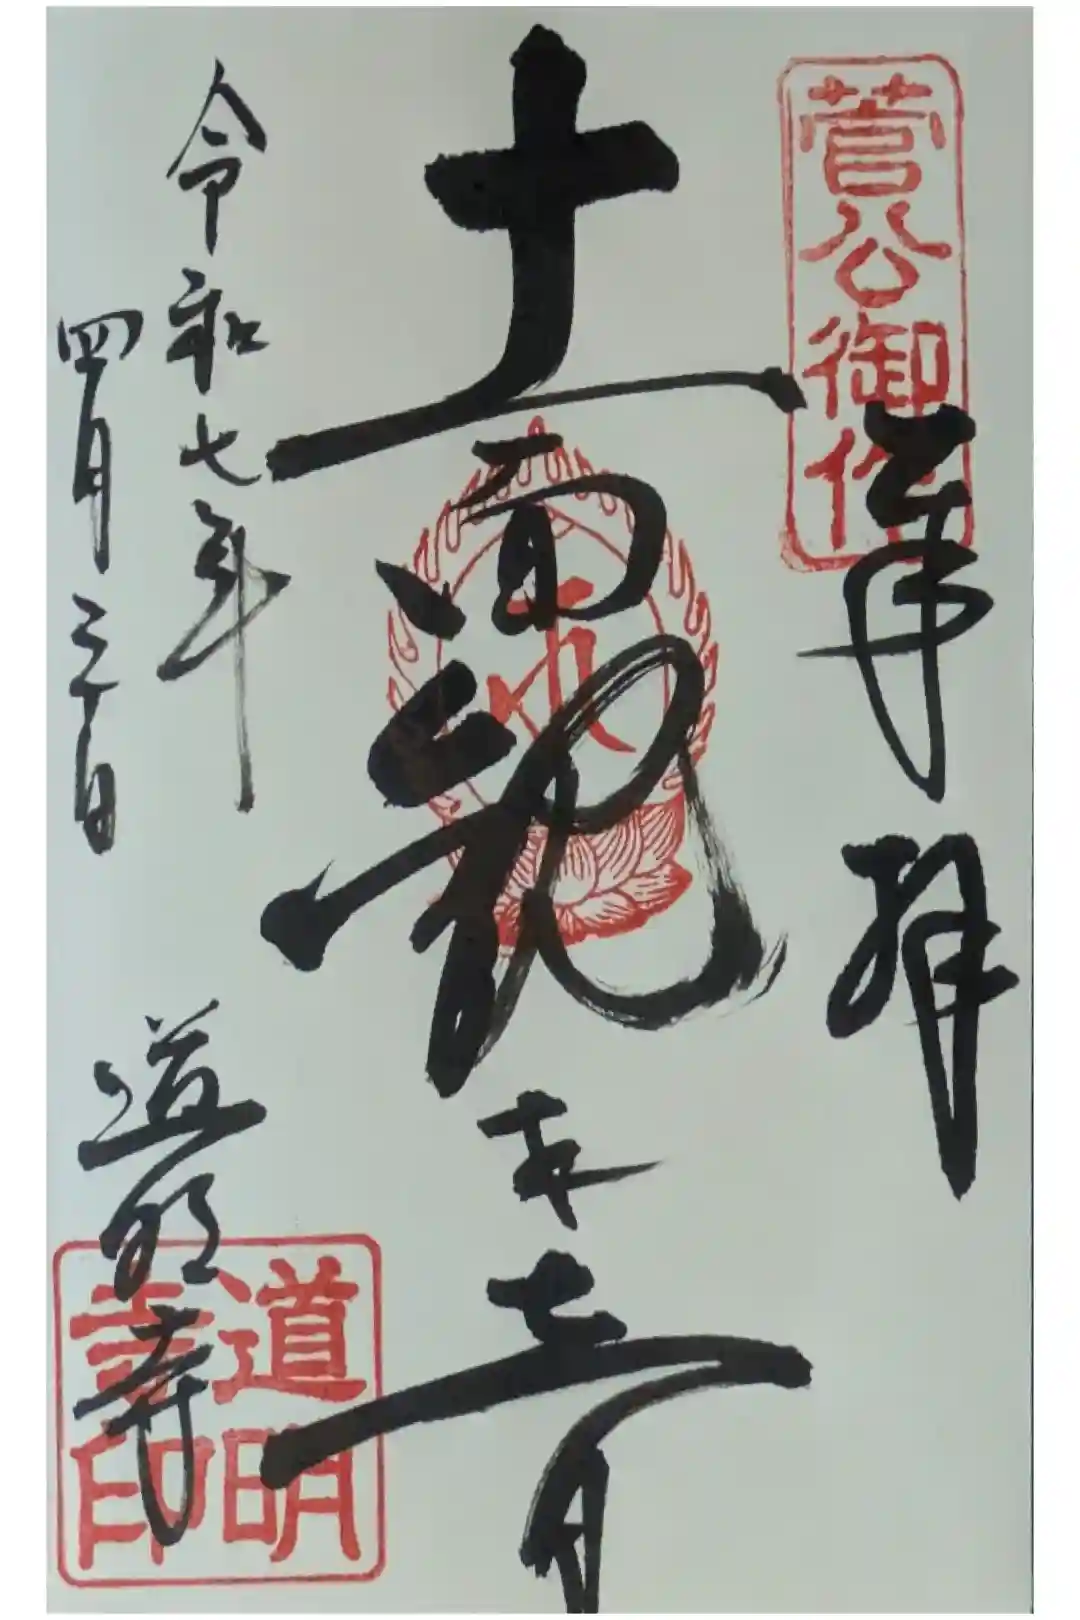 菅公御作
奉拝
十一面観世音
令和七年
四月三十日
道明寺
道明
寺印